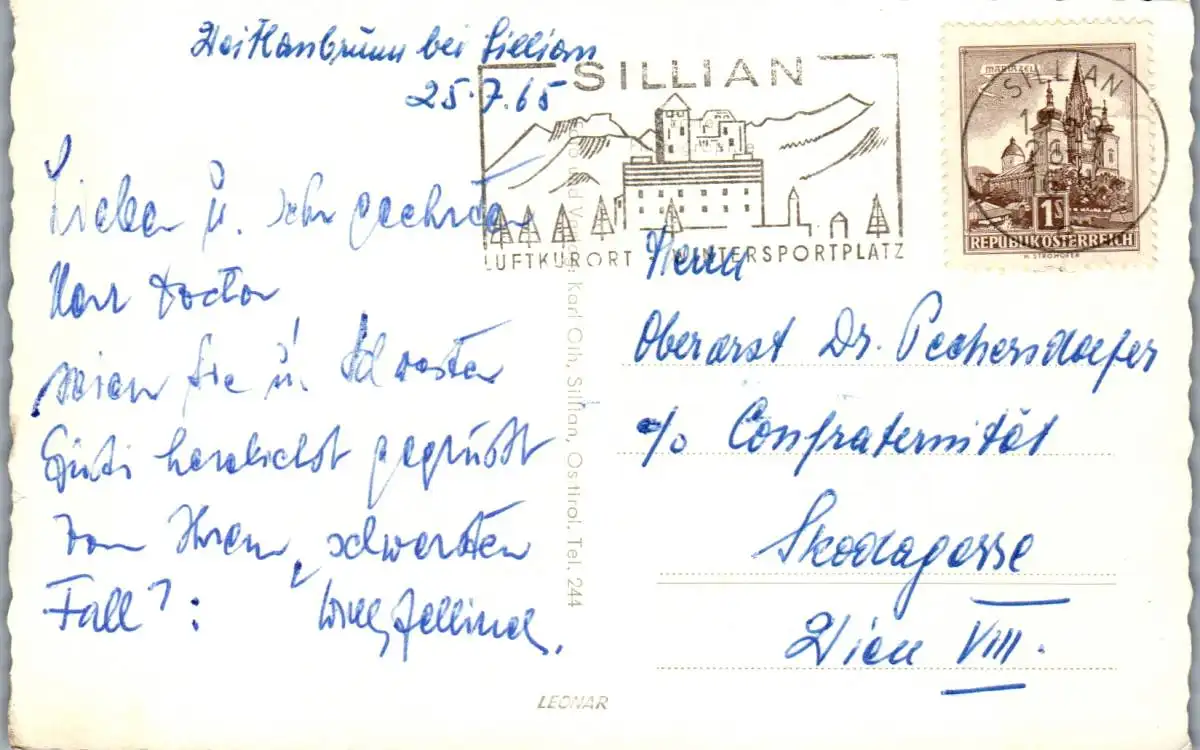 Weitlanbrunn bei Sillian
25.7.65
Lieber u. sehr geehrter
Herr Doctor
seien Sie u. Schwester
Gusti herzlichst gegrüßt
von Ihrem „schwersten
Fall":
Willy
SILLIAN
LUFTKURORT WINTERSPORTPLATZ
MARIAZELL
SILLIAN
1S
REPUBLIK ÖSTERREICH
H. STROHOFER
Herrn
Oberarzt Dr. Pechersdorfer
c/o Confraternität
Skodagasse
Wien VIII.
Verlag Karl Oth, Sillian, Osttirol. Tel. 244
LEONAR